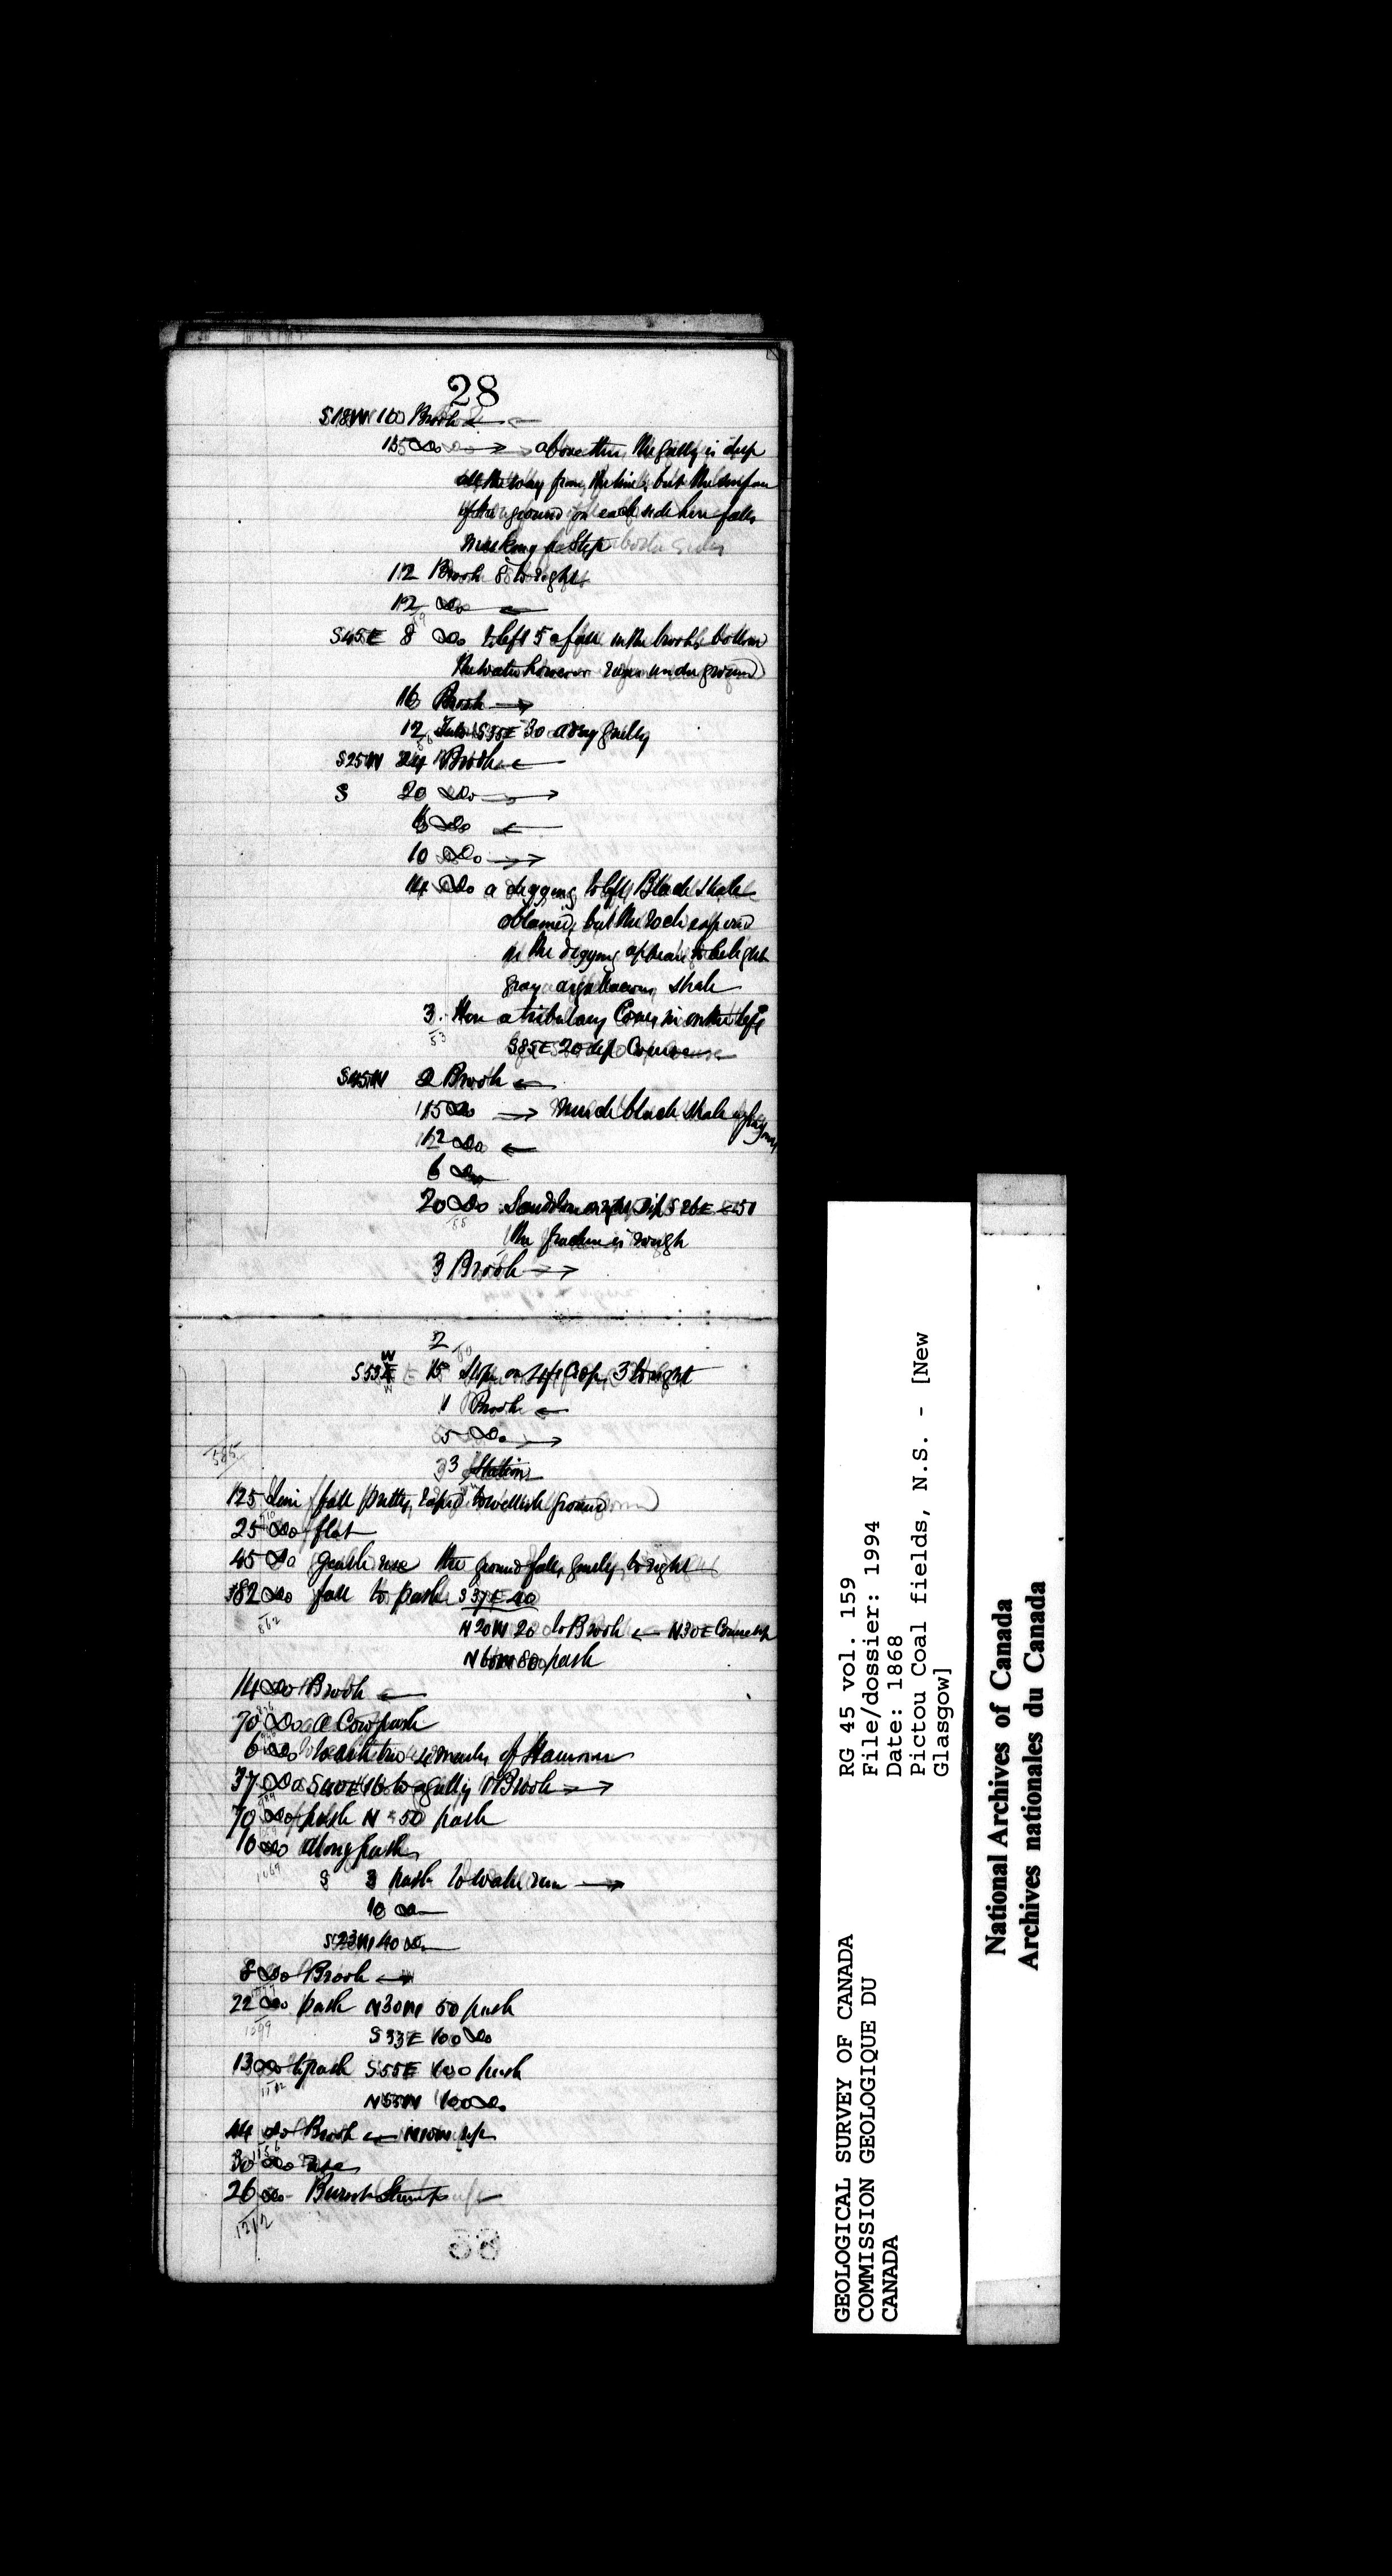 28
S18W 100 Brook ←
15 Do → above this the gully is deep
all the way from the line, but the surface
of the ground on each side here falls
making a Step
12 Brook 8 to right
12 Do ←
S45E 8 Do to left 5 a fall in the brooks bottom
the water however runs under ground
16 Brook →
12 S35E 30 a dry gully
S25W 24 Brook ←
S 20 Do →
Do ←
10 Do →
14 Do a digging to left, Black shale
obtained, but the rock exposed
in the digging appears to be light
gray argillaceous shale
3. Here a tributary Comes in on the left
53
S85E 20 up Course
S45W 2 Brook ←
15 Do → Much black shale
12 Do ←
6 Do
20 Do Sandstone on right dip S26E <51
the fracture is rough
3 Brook →
2
W
S53E 15 Slope on left 3 to right
11 Brook ←
5 Do →
33 Station
585
125 Line fall pretty rapid to wettish ground
25 Do flat
45 Do gentle rise the ground falls gently to right
82 Do fall to path S37E 40
862
N20W 20 to Brook ← N30E Course up
N60W 80 path
14 Do Brook ←
70 Do a Cow path
6 Do
37 Do S40E 16 to a gully Brook →
70 Do path N 50 path
10 Do along path
1069
S 3 path to water run →
10 Do
S23W 40 Do
8 Do Brook →
22 Do path N30W 50 path
1099
S33E 100 Do
13 Do to path S55E 100 path
1112
N55W 100 Do
44 Do Brook ← up
1156
30 Do rise
26 Do Burnt Stump
1212
GEOLOGICAL SURVEY OF CANADA
COMMISSION GEOLOGIQUE DU
CANADA
RG 45 vol. 159
File/dossier: 1994
Date: 1868
Pictou Coal fields, N.S. - [New
Glasgow]
National Archives of Canada
Archives nationales du Canada